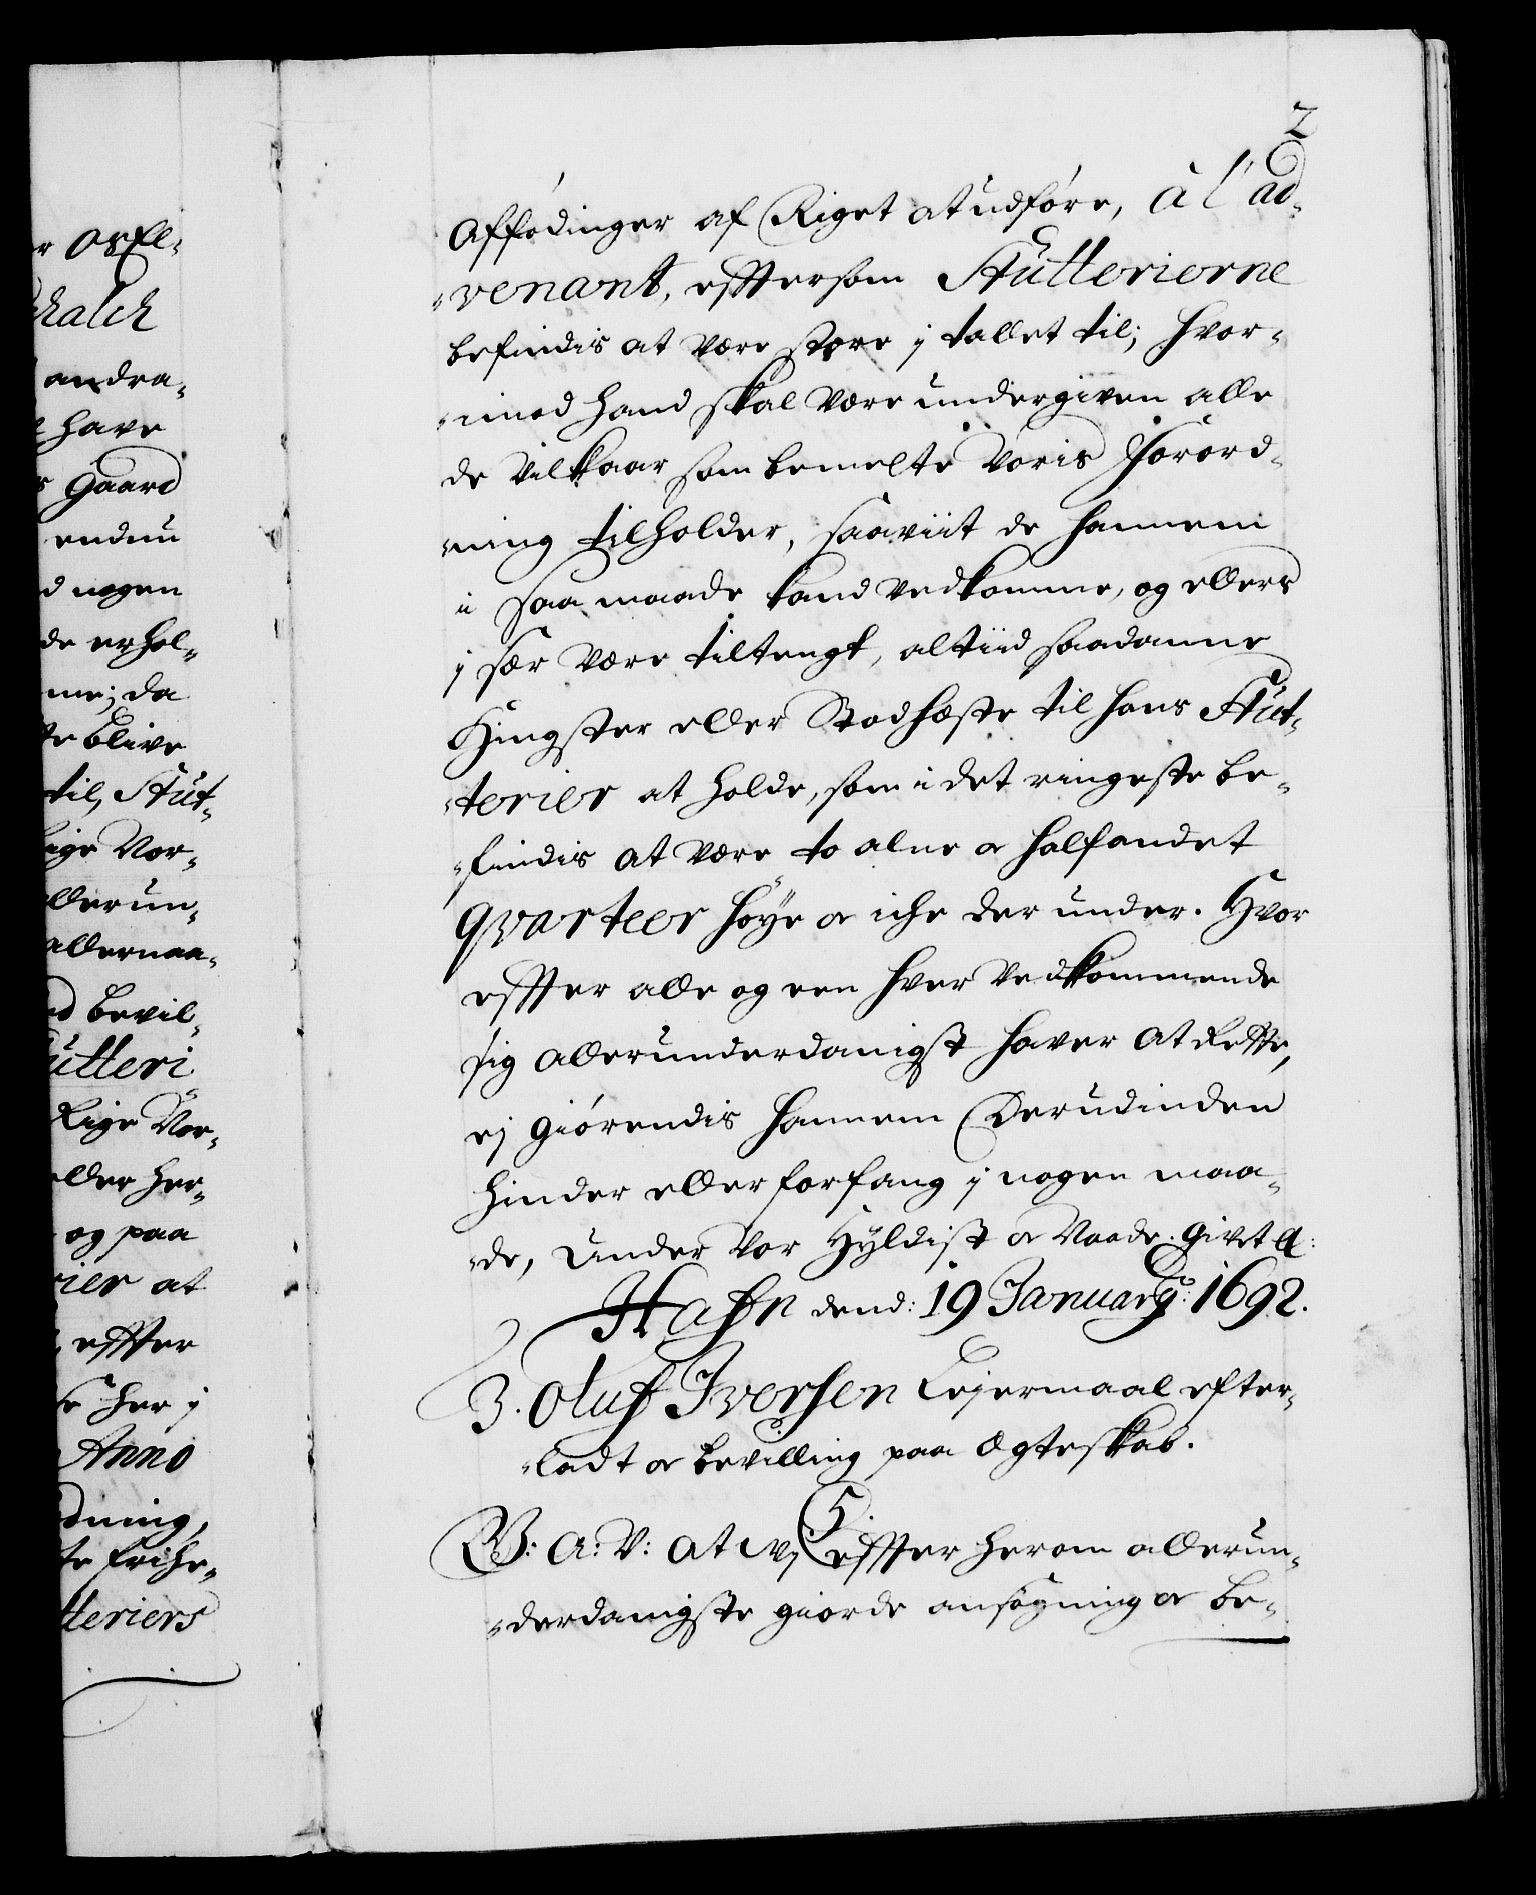 2
Affördinger af Riget at udföre, à l'ad-
venant, efftersom Stutterierne
befindis at være store j tallet til; hvor-
imod hand skal være undergiven alle
de Vilkaar som bemelte Voris Forord-
ning tilholder, saaviit de hannem
i saa maade kand vedkomme, og ellers
j sær være tiltengt, altiid saadanne
Hingster eller Stodhæste til hans Stut-
terier at holde, som i det ringeste be-
findis at være to alne oc halfandet
qvarteer höye oc iche der under. Hvor
effter alle og een hver Vedkommende
sig allerunderdanigst haver at rette,
ej giörendis hannem derudinden
hinder eller forfang j nogen maa-
de, under Vor Hyldist oc Naade. Givet a:
Hafn dend: 19 Januarij: 1692.
3. Oluf Iversen Lejermaal efter-
ladt oc bevilling paa Ægteskab.
5.
G: A: V: at vj effter herom allerun-
derdanigste giorde ansögning oc be-
r
halch
andra-
have
s Gaard
endnu
d nogen
de erhol-
me; da
te blive
til, Stut-
lige Vor-
llerun-
allernaa-
ed bevil-
utteri
lige Vor-
eller her-
og paa
rier at
, effter
her j
Anno
dning,
te frihe-
tteriers